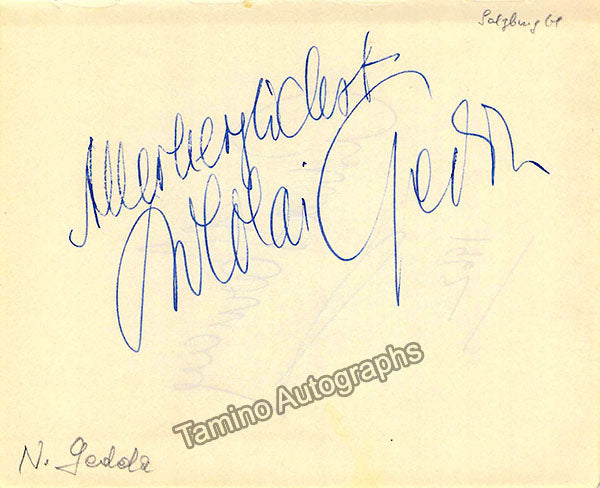 Salzburg 61
Allerherzlichst
Nicolai Gedda
Tamino Autographs
N. Gedda